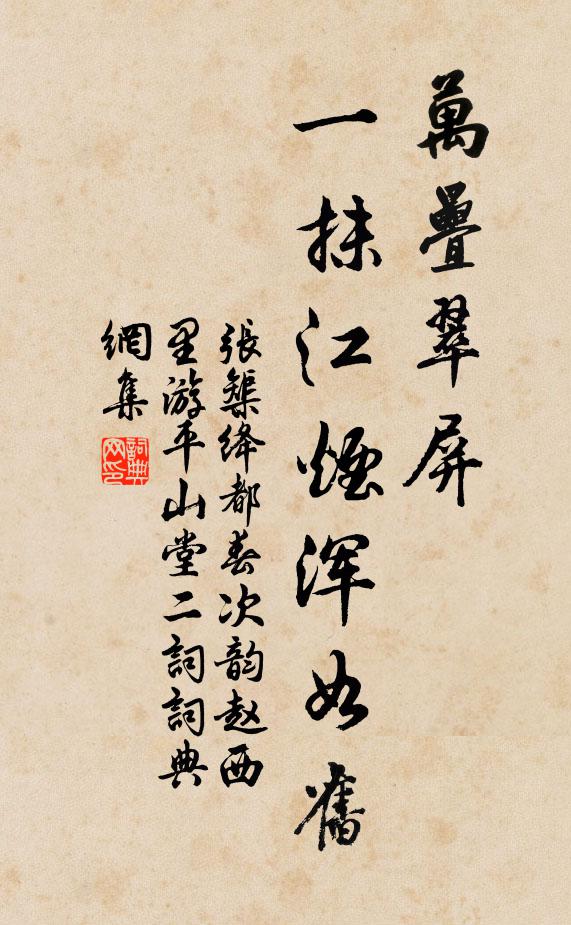 萬疊翠屏
一抹江煙渾如舊
張榘绛都春次韵赵西
里游平山堂二詞詞典
網集
詞典网印